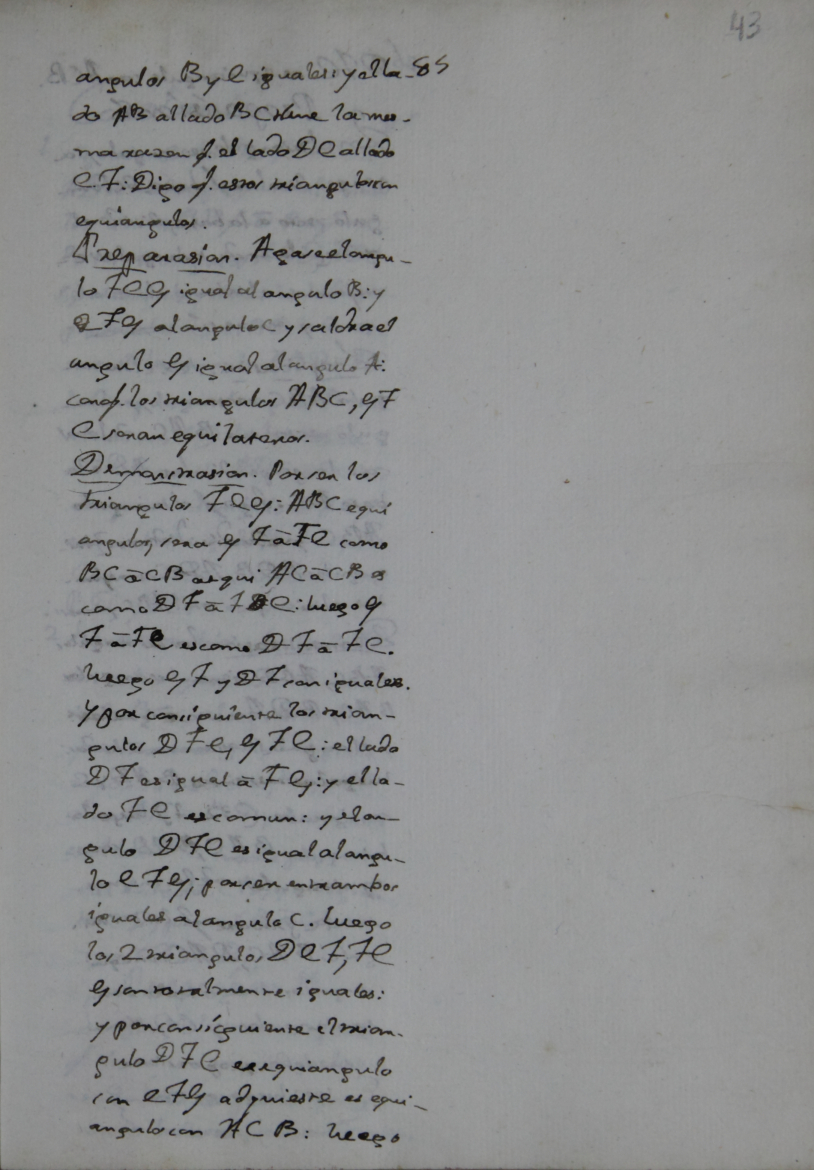 43
angulos B y C iguales: y el la- 85
do AB al lado BC tiene la mes-
ma razon q. el lado DE al lado
EF: Digo q. estos triangulos son
equiangulos.
Preparasion. Agase el angu-
lo FEG igual al angulo B: y
EFG al angulo C y saldra el
angulo G igual al angulo A:
conq. los triangulos ABC, GF
E seran equilateros.
Demonstrasion. Por ser los
triangulos FEG: ABC equi
angulos, sera GF à FE como
BC à CB aequi AC à CB es
como DF à FE: luego G
F à FE es como DF à FE.
luego GF y DF son iguales.
Y por consiguiente los trian-
gulos DFE, GFE: el lado
DF es igual à FG: y el la-
do FE es comun: y el an-
gulo DFE es igual al angu-
lo EFG; por ser entrambos
iguales al angulo C. luego
los 2 triangulos DEF, FE
G son totalmente iguales:
y por consiguiente el trian-
gulo DFE es equiangulo
con EFG adqui este es equi-
angulo con ACB: luego